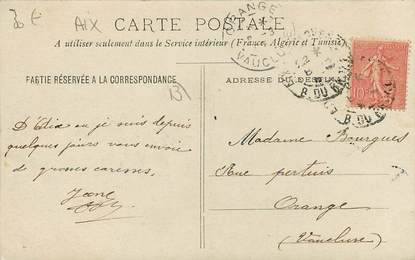 30 €
AIX
13
CARTE POSTALE
A utiliser seulement dans le Service intérieur (France, Algérie et Tunisie)
PARTIE RÉSERVÉE A LA CORRESPONDANCE
ADRESSE DU DES
ORANGE
VAUCLUSE
B. DU RH
10
D'Aix ou je suis depuis
quelques jours vous envoie
de grosses caresses.
Jeane
Madame Bourgues
Rue pertuis
Orange
(Vaucluse)